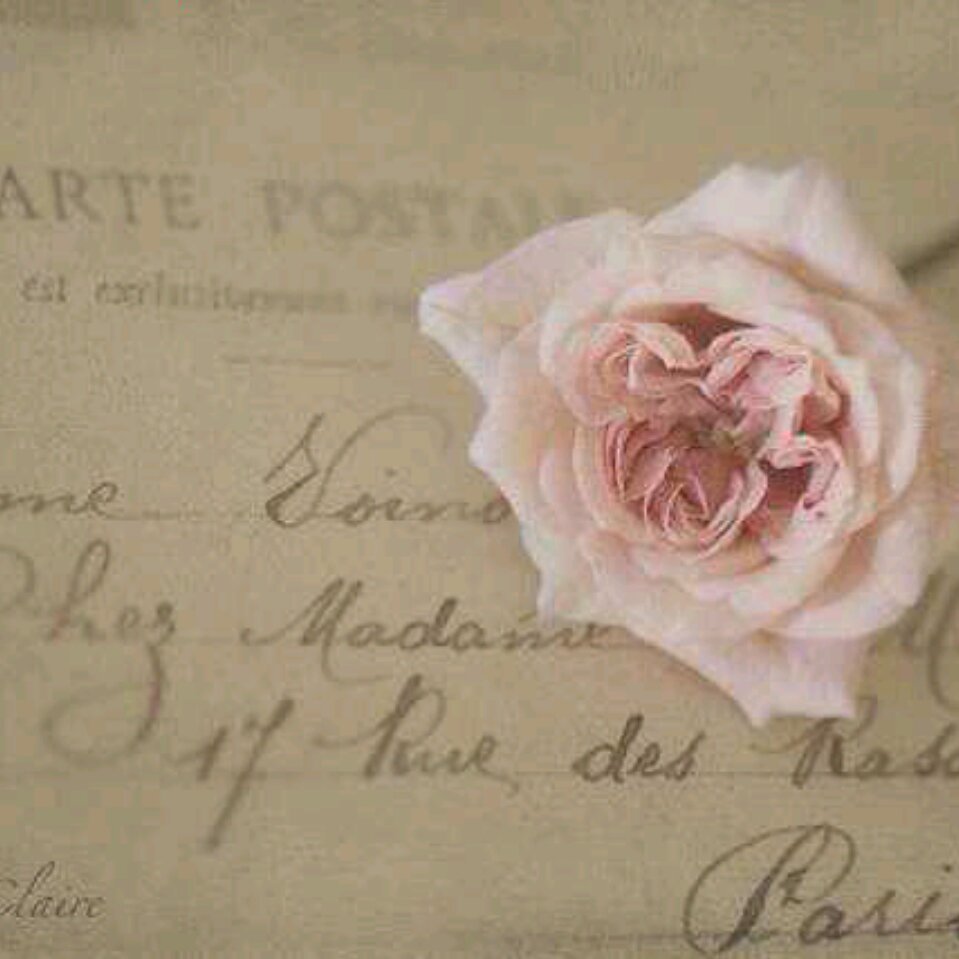 ARTE POSTAL
est exclusivement
me Voino
Chez Madame M
17 Rue des Rasc
Paris
Claire